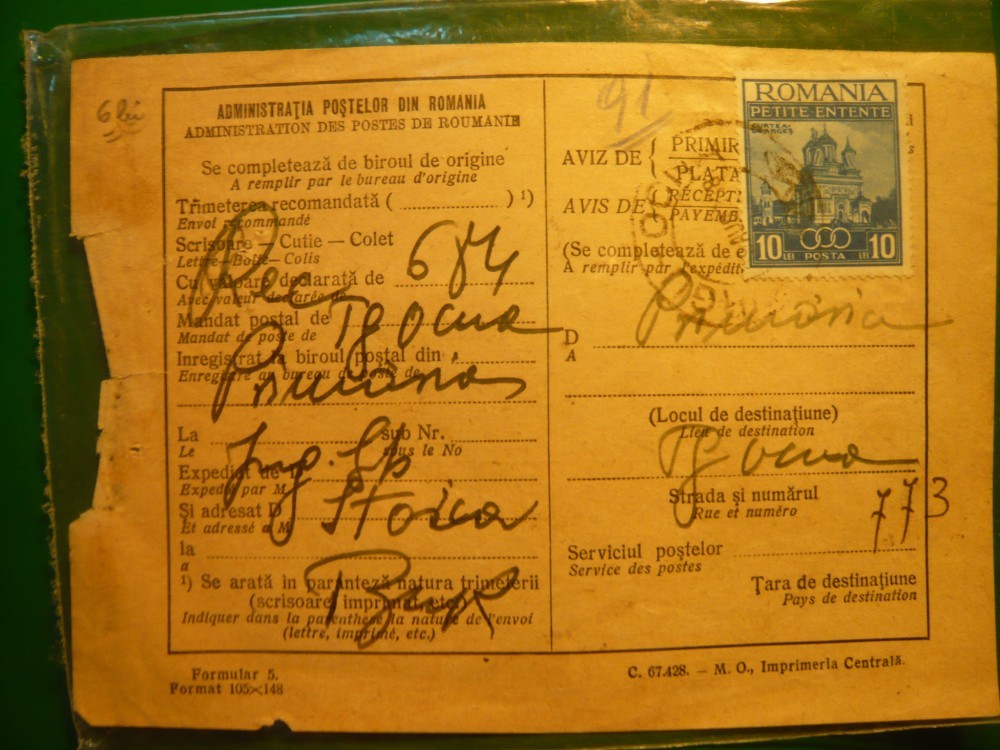 6 lei
ADMINISTRAȚIA POȘTELOR DIN ROMANIA
ADMINISTRATION DES POSTES DE ROUMANIE
Se completează de biroul de origine
A remplir par le bureau d'origine
Trimeterea recomandată (..................) ¹)
Envoi recommandé
Rec
Scrisoare — Cutie — Colet
Lettre—Boîte—Colis
Cu valoare declarată de 684
Avec valeur déclarée de
Mandat postal de Tg Ocna
Mandat de poste de
Inregistrat la biroul postal din
Enregistré au bureau de poste de
Primăria
La sub Nr.
Le sous le No
Ing.
Expediat de D
Expedié par M
Și adresat D Stoica
Et adressé a M
la
a
Buc
¹) Se arată în paranteză natura trimeterii
(scrisoare, imprimat, etc.)
Indiquer dans la parenthèse la nature de l'envoi
(lettre, imprimé, etc.)
Formular 5.
Format 105×148
91
AVIZ DE { PRIMIR
PLATA
AVIS DE RÉCEPT
PAYEME
(Se completează de e
A remplir par l'expédit
ROMANIA
PETITE ENTENTE
CURTEA
DE ARGEȘ
10 LEI POSTA LEI 10
Primăria
D
A
(Locul de destinațiune)
Lieu de destination
Tg Ocna
Strada și numărul
Rue et numéro
773
Serviciul poștelor
Service des postes
Țara de destinațiune
Pays de destination
C. 67.428. — M. O., Imprimeria Centrală.